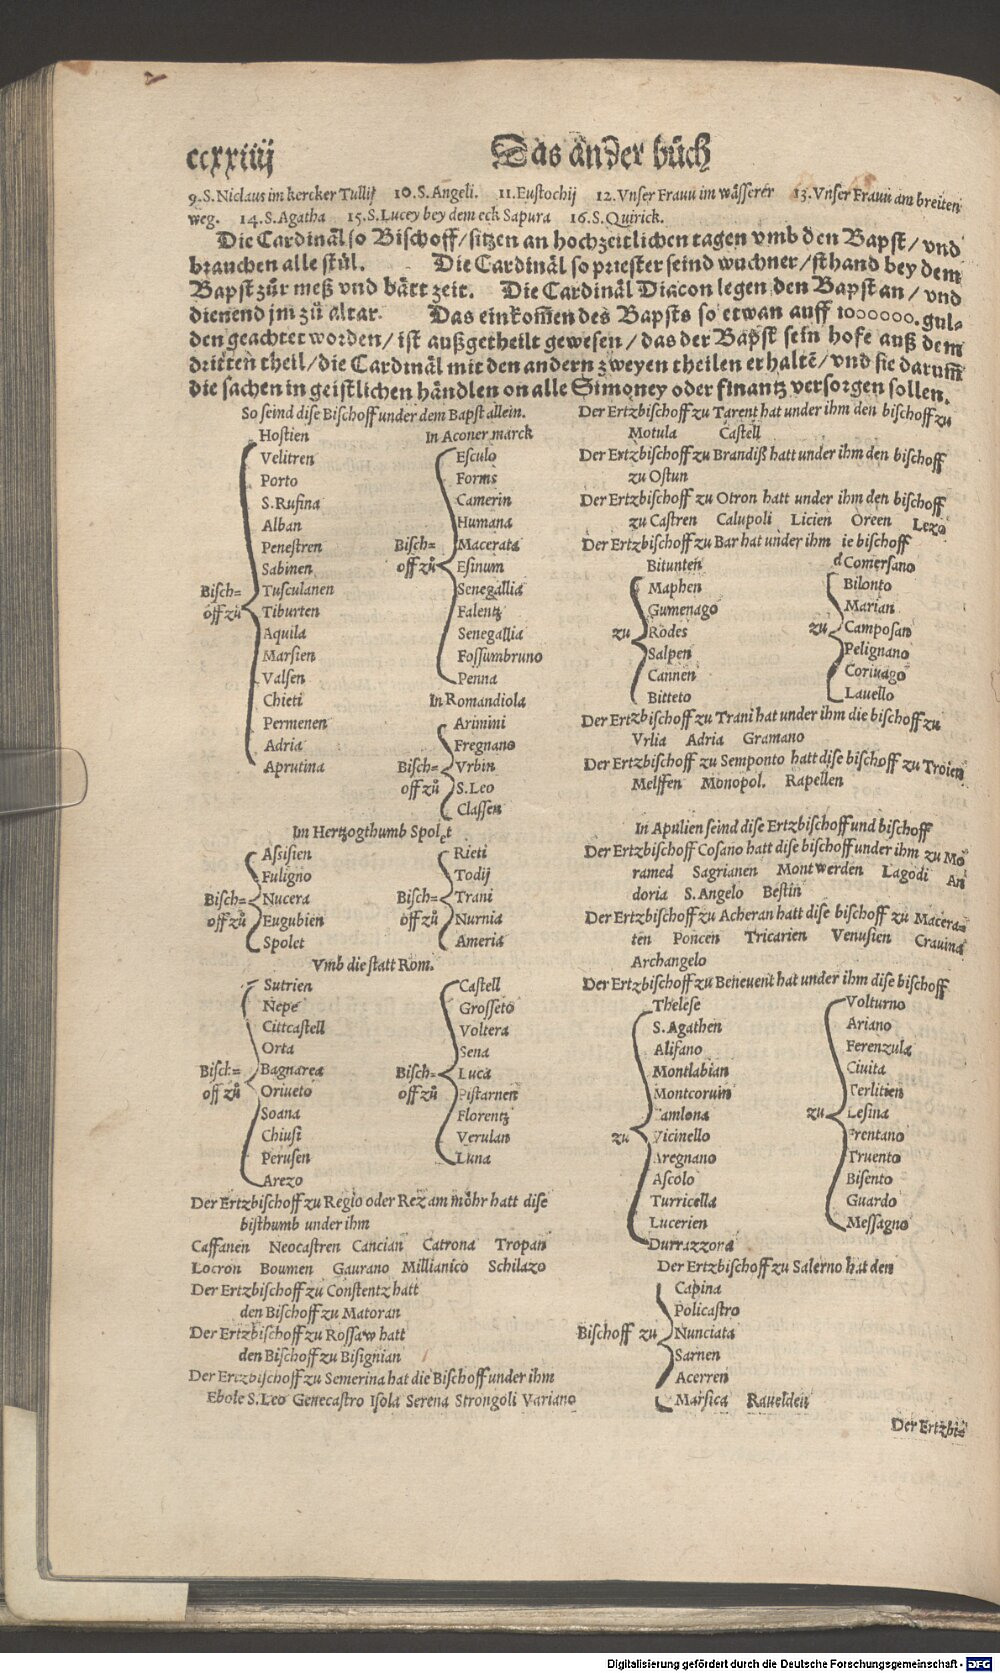 ccxxiiij Das ander bůch
9.S.Niclaus im kercker Tullij 10.S.Angeli. 11.Eustochij 12.Vnser Frauu im wässerer 13.Vnser Frauu am breiten
weg. 14.S.Agatha 15.S.Lucey bey dem eck Sapura 16.S.Quirick.
Die Cardinäl so Bischoff/sitzen an hochzeitlichen tagen vmb den Bapst/vnd
brauchen alle stül. Die Cardinäl so priester seind wuchner/sthand bey dem
Bapst zůr meß vnd bätt zeit. Die Cardinäl Diacon legen den Bapst an/vnd
dienend jm zů altar. Das einkom̃en des Bapsts so etwan auff 1000000.gul-
den geachtet worden/ist außgetheilt gewesen/das der Bapst sein hofe auß dem
dritten theil/die Cardinäl mit den andern zweyen theilen erhaltẽ/vnd sie darum̃
die sachen in geistlichen händlen on alle Simoney oder finantz versorgen sollen.
So seind dise Bischoff under dem Bapst allein.
Hostien
Velitren
Porto
S.Rufina
Alban
Penestren
Sabinen
Bisch-
off zů
Tusculanen
Tiburten
Aquila
Marsien
Valsen
Chieti
Permenen
Adria
Aprutina
In Aconer marck
Esculo
Forms
Camerin
Humana
Bisch-
off zů
Macerata
Esinum
Senegallia
Falentz
Senegallia
Fossumbruno
Penna
In Romandiola
Arimini
Fregnano
Bisch-
off zů
Vrbin
S.Leo
Classen
Im Hertzogthumb Spolet
Assisien
Fuligno
Bisch-
off zů
Nucera
Eugubien
Spolet
Rieti
Todij
Bisch-
off zů
Trani
Nurnia
Ameria
Vmb die statt Rom.
Sutrien
Nepe
Cittcastell
Orta
Bisch-
off zů
Bagnarea
Oriueto
Soana
Chiusi
Perusen
Arezo
Castell
Grosseto
Voltera
Sena
Bisch-
off zů
Luca
Pistarnen
Florentz
Verulan
Luna
Der Ertzbischoff zu Regio oder Rez am möhr hatt dise
bisthumb under ihm
Caffanen Neocastren Cancian Catrona Tropan
Locron Boumen Gaurano Millianico Schilazo
Der Ertzbischoff zu Constentz hatt
den Bischoff zu Matoran
Der Ertzbischoff zu Rossaw hatt
den Bischoff zu Bisignian
Der Ertzbischoff zu Semerina hat die Bischoff under ihm
Ebole S.Leo Genecastro Isola Serena Strongoli Variano
Der Ertzbischoff zu Tarent hat under ihm den bischoff zu
Motula Castell
Der Ertzbischoff zu Brandiß hatt under ihm den bischoff
zu Ostun
Der Ertzbischoff zu Otron hatt under ihm den bischoff
zu Castren Calupoli Licien Oreen Lezo
Der Ertzbischoff zu Bar hat under ihm die bischoff
Bitunten
Maphen
Gumenago
zu
Rodes
Salpen
Cannen
Bitteto
Comersano
Bilonto
Marian
zu
Camposan
Pelignano
Coriuago
Lauello
Der Ertzbischoff zu Trani hat under ihm die bischoff zu
Vrlia Adria Gramano
Der Ertzbischoff zu Semponto hatt dise bischoff zu Troien
Melffen Monopol. Rapellen
In Apulien seind dise Ertzbischoff und bischoff
Der Ertzbischoff Cosano hatt dise bischoff under ihm zu Mo
ramed Sagrianen Montwerden Lagodi An
doria S.Angelo Bestin
Der Ertzbischoff zu Acheran hatt dise bischoff zu Macera-
ten Poncen Tricarien Venusien Crauina
Archangelo
Der Ertzbischoff zu Beneuent hat under ihm dise bischoff
Thelese
S.Agathen
Alifano
Montlabian
Montcoruin
Tamlona
zu
Vicinello
Aregnano
Ascolo
Turricella
Lucerien
Durrazzona
Volturno
Ariano
Ferenzula
Ciuita
Terlitien
zu
Lesina
Frentano
Truento
Bisento
Guardo
Messagno
Der Ertzbischoff zu Salerno hat den
Capina
Policastro
Bischoff zu
Nunciata
Sarnen
Acerren
Marsica Rauelden
Der Ertzbi-
Digitalisierung gefördert durch die Deutsche Forschungsgemeinschaft - DFG